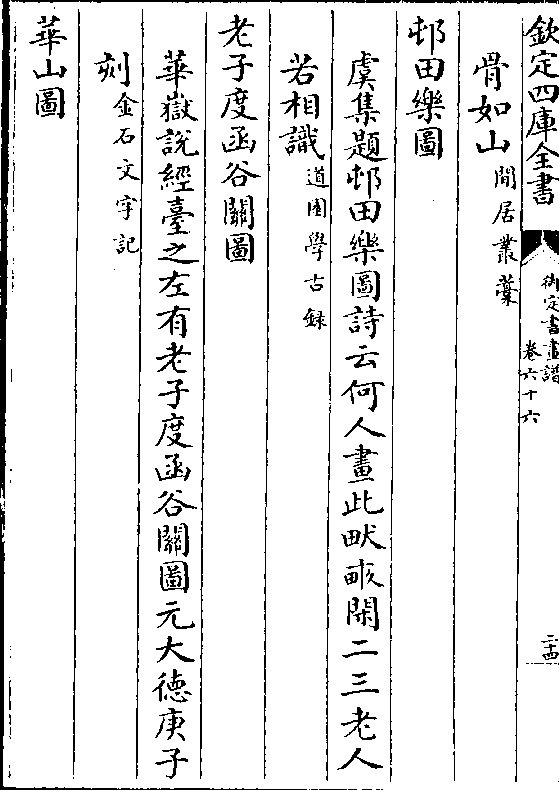 欽定四庫全書
御定書畫譜
卷六十六
二十四
骨如山閒居叢藁
邨田樂圖
虞集題邨田樂圖詩云何人畫此畎畝閑二三老人
若相識道園學古録
老子度函谷關圖
華嶽說經臺之左有老子度函谷關圖元大徳庚子
刻金石文字記
華山圖